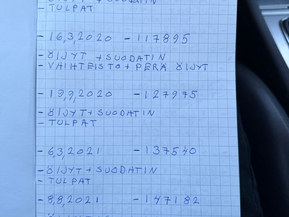 - TULPAT
- 16,3,2020 - 117895
- ÖIJYT + SUODATIN
- VAIHTEISTO + PERÄ ÖIJYT
- 19,9,2020 - 127995
- ÖIJYT + SUODATIN
- TULPAT
- 6,3,2021 - 137540
- ÖIJYT + SUODATIN
- TULPAT
- 8,8,2021 - 147182